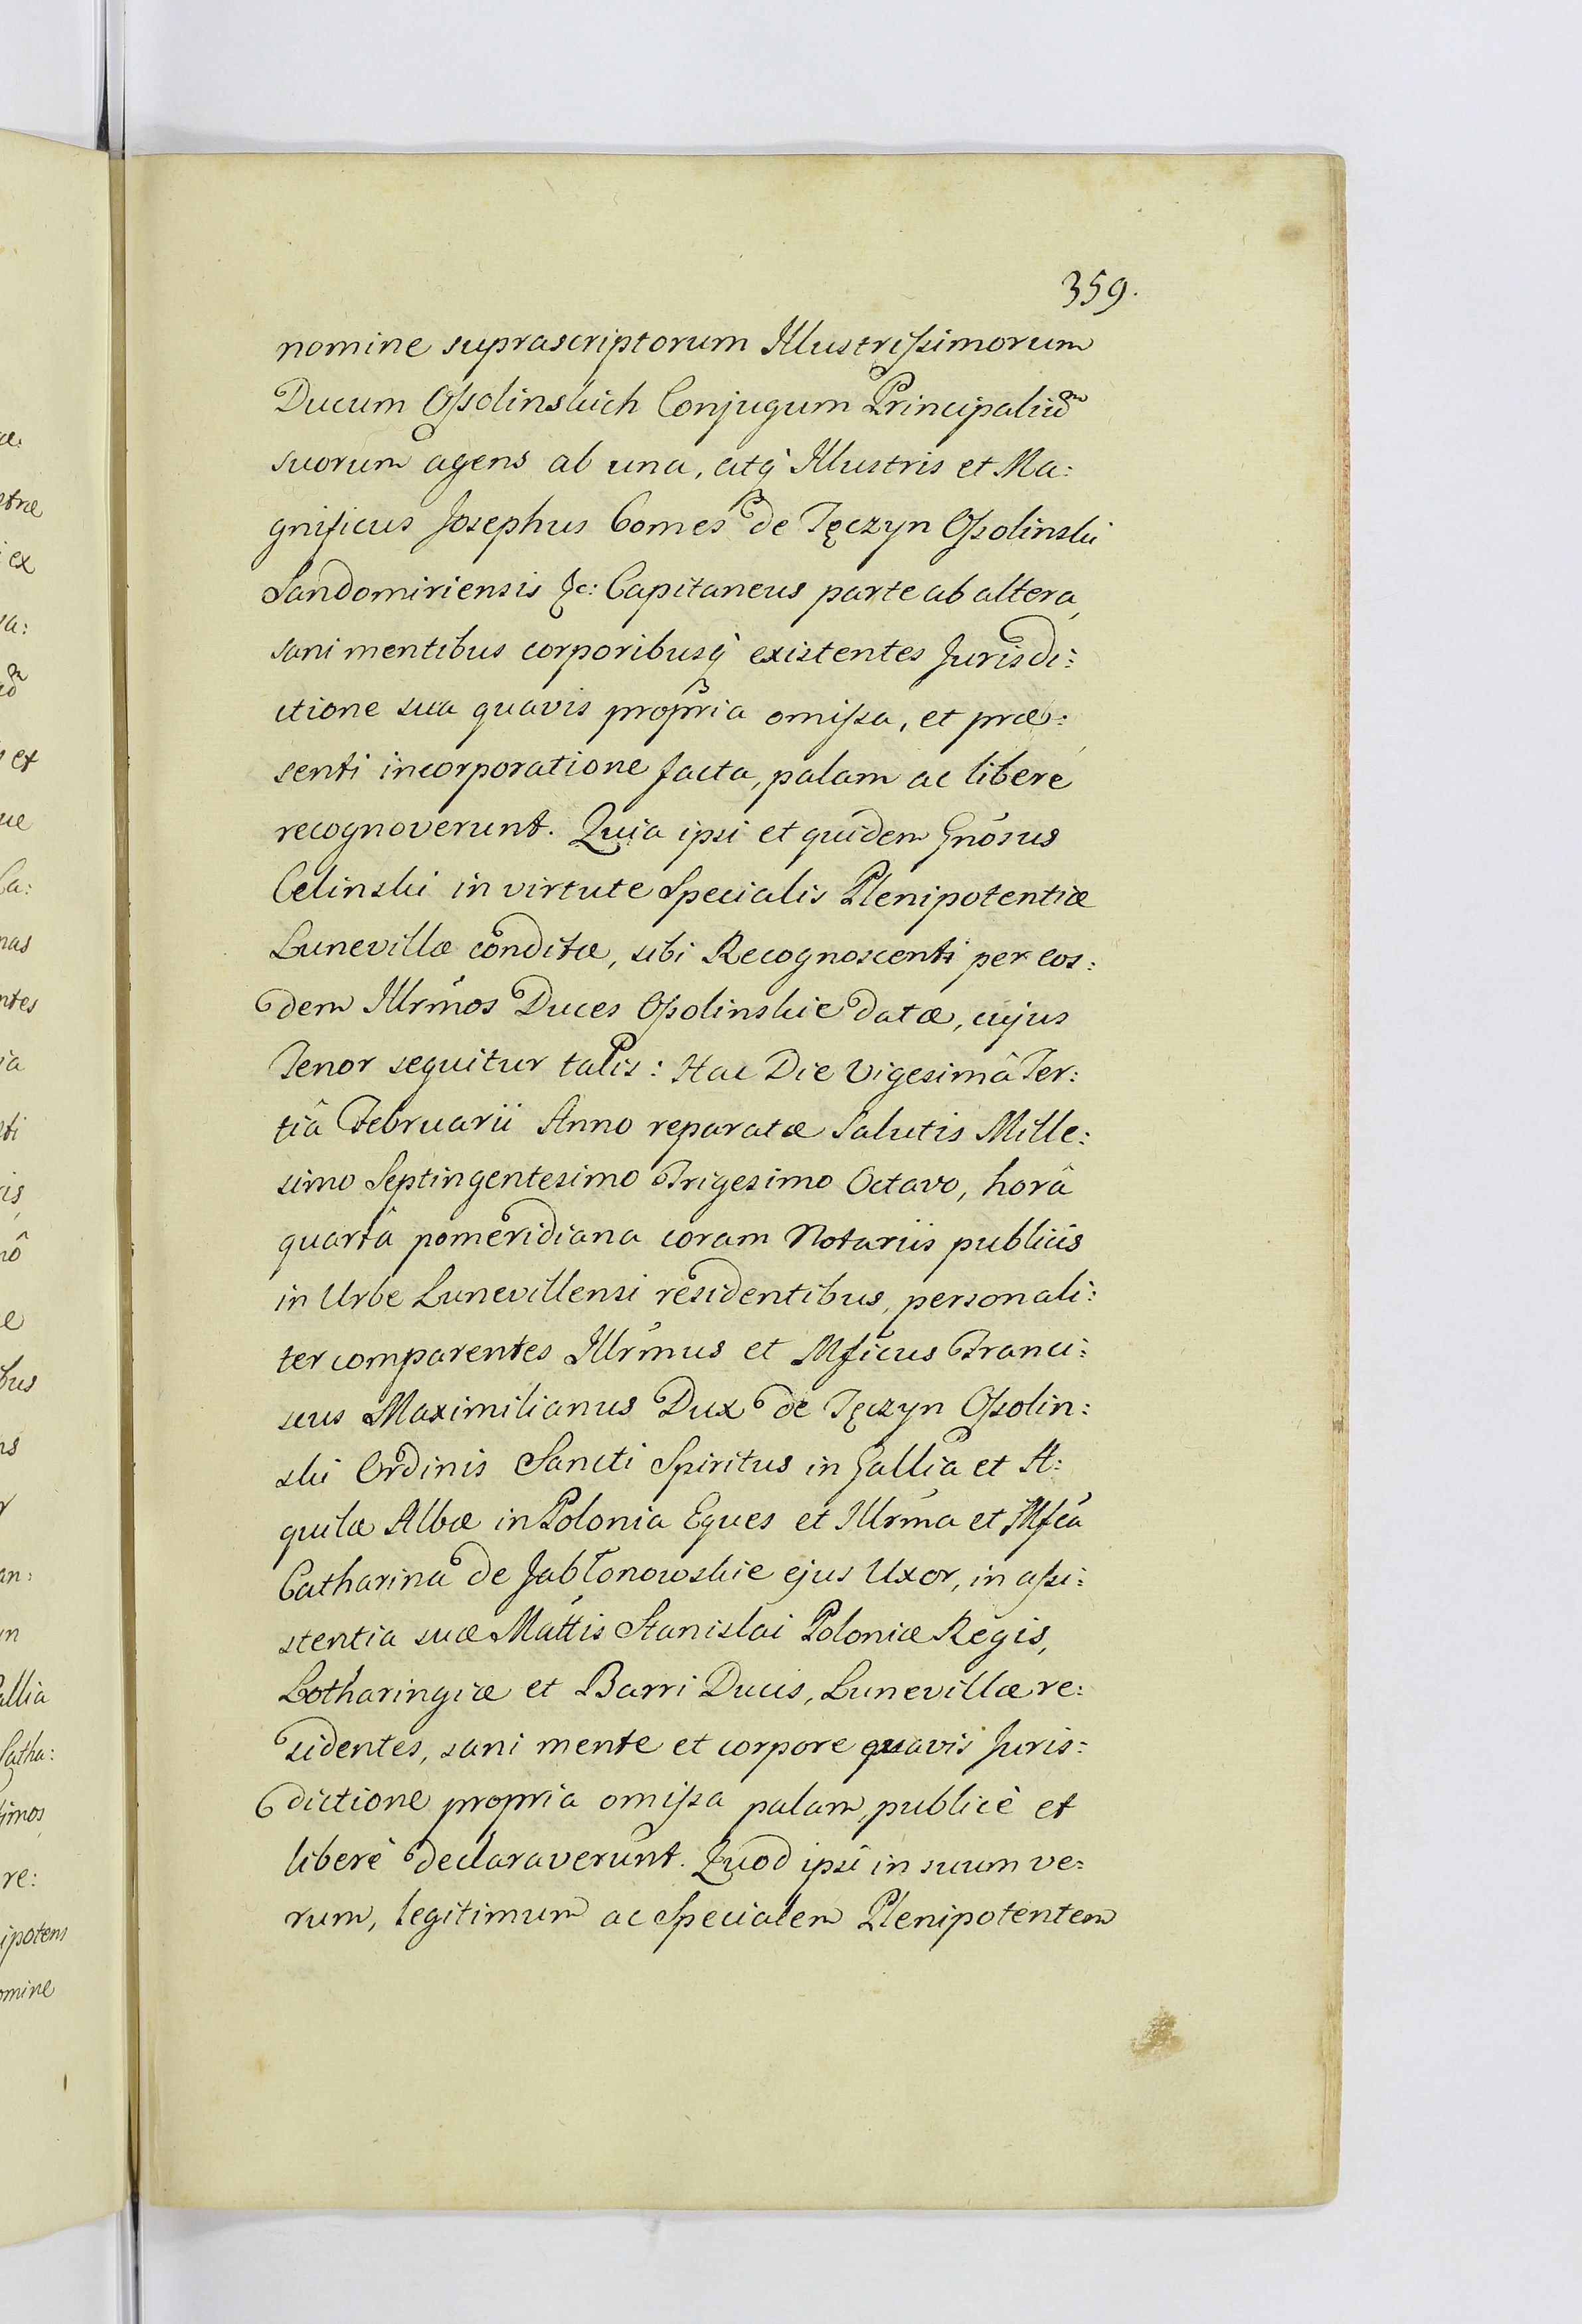 359.
nomine suprascriptorum Illustrissimorum
Ducum Ossolinskich Conjugum Principaliũ
suorum agens ab una, atq̀ Illustris et Ma:
gnificus Josephus Comes de Tęczyn Ossolinski
Sandomiriensis &c: Capitaneus parte ab altera,
sani mentibus corporibusq̀ existentes Jurisdi:
ctione sua quavis propria omissa, et præ:
senti incorporatione facta, palam ac libere
recognoverunt. Quia ipsi et quidem Gnósus
Celinski in virtute Specialis Plenipotentiæ
Lunevillæ conditæ, sibi Recognoscenti per eos:
dem Illrḿos Duces Ossolinskie datæ, cujus
Tenor sequitur talis: Hac Die Vigesimâ Ter:
tiâ Februarii Anno reparatæ Salutis Mille:
simo Septingentesimo Trigesimo Octavo, horâ
quartâ pomeridiana coram Notariis publicis
in Urbe Lunevillensi residentibus, personali:
ter comparentes Illrḿus et Mficus Franci:
scus Maximilianus Dux de Tęczyn Ossolin:
ski Ordinis Sancti Spiritus in Gallia et A:
quilæ Albæ in Polonia Eques et Illrḿa et Mfća
Catharina de Jabłonowskie ejus Uxor, in assi:
stentia suæ Mattis Stanislai Poloniæ Regis,
Lotharingiæ et Barri Ducis, Lunevillæ re:
sidentes, sani mente et corpore quavis Juris:
dictione propria omissa palam, publicè et
liberè declaraverunt. Quod ipsi in suum ve:
rum, legitimum ac Specialem Plenipotentem